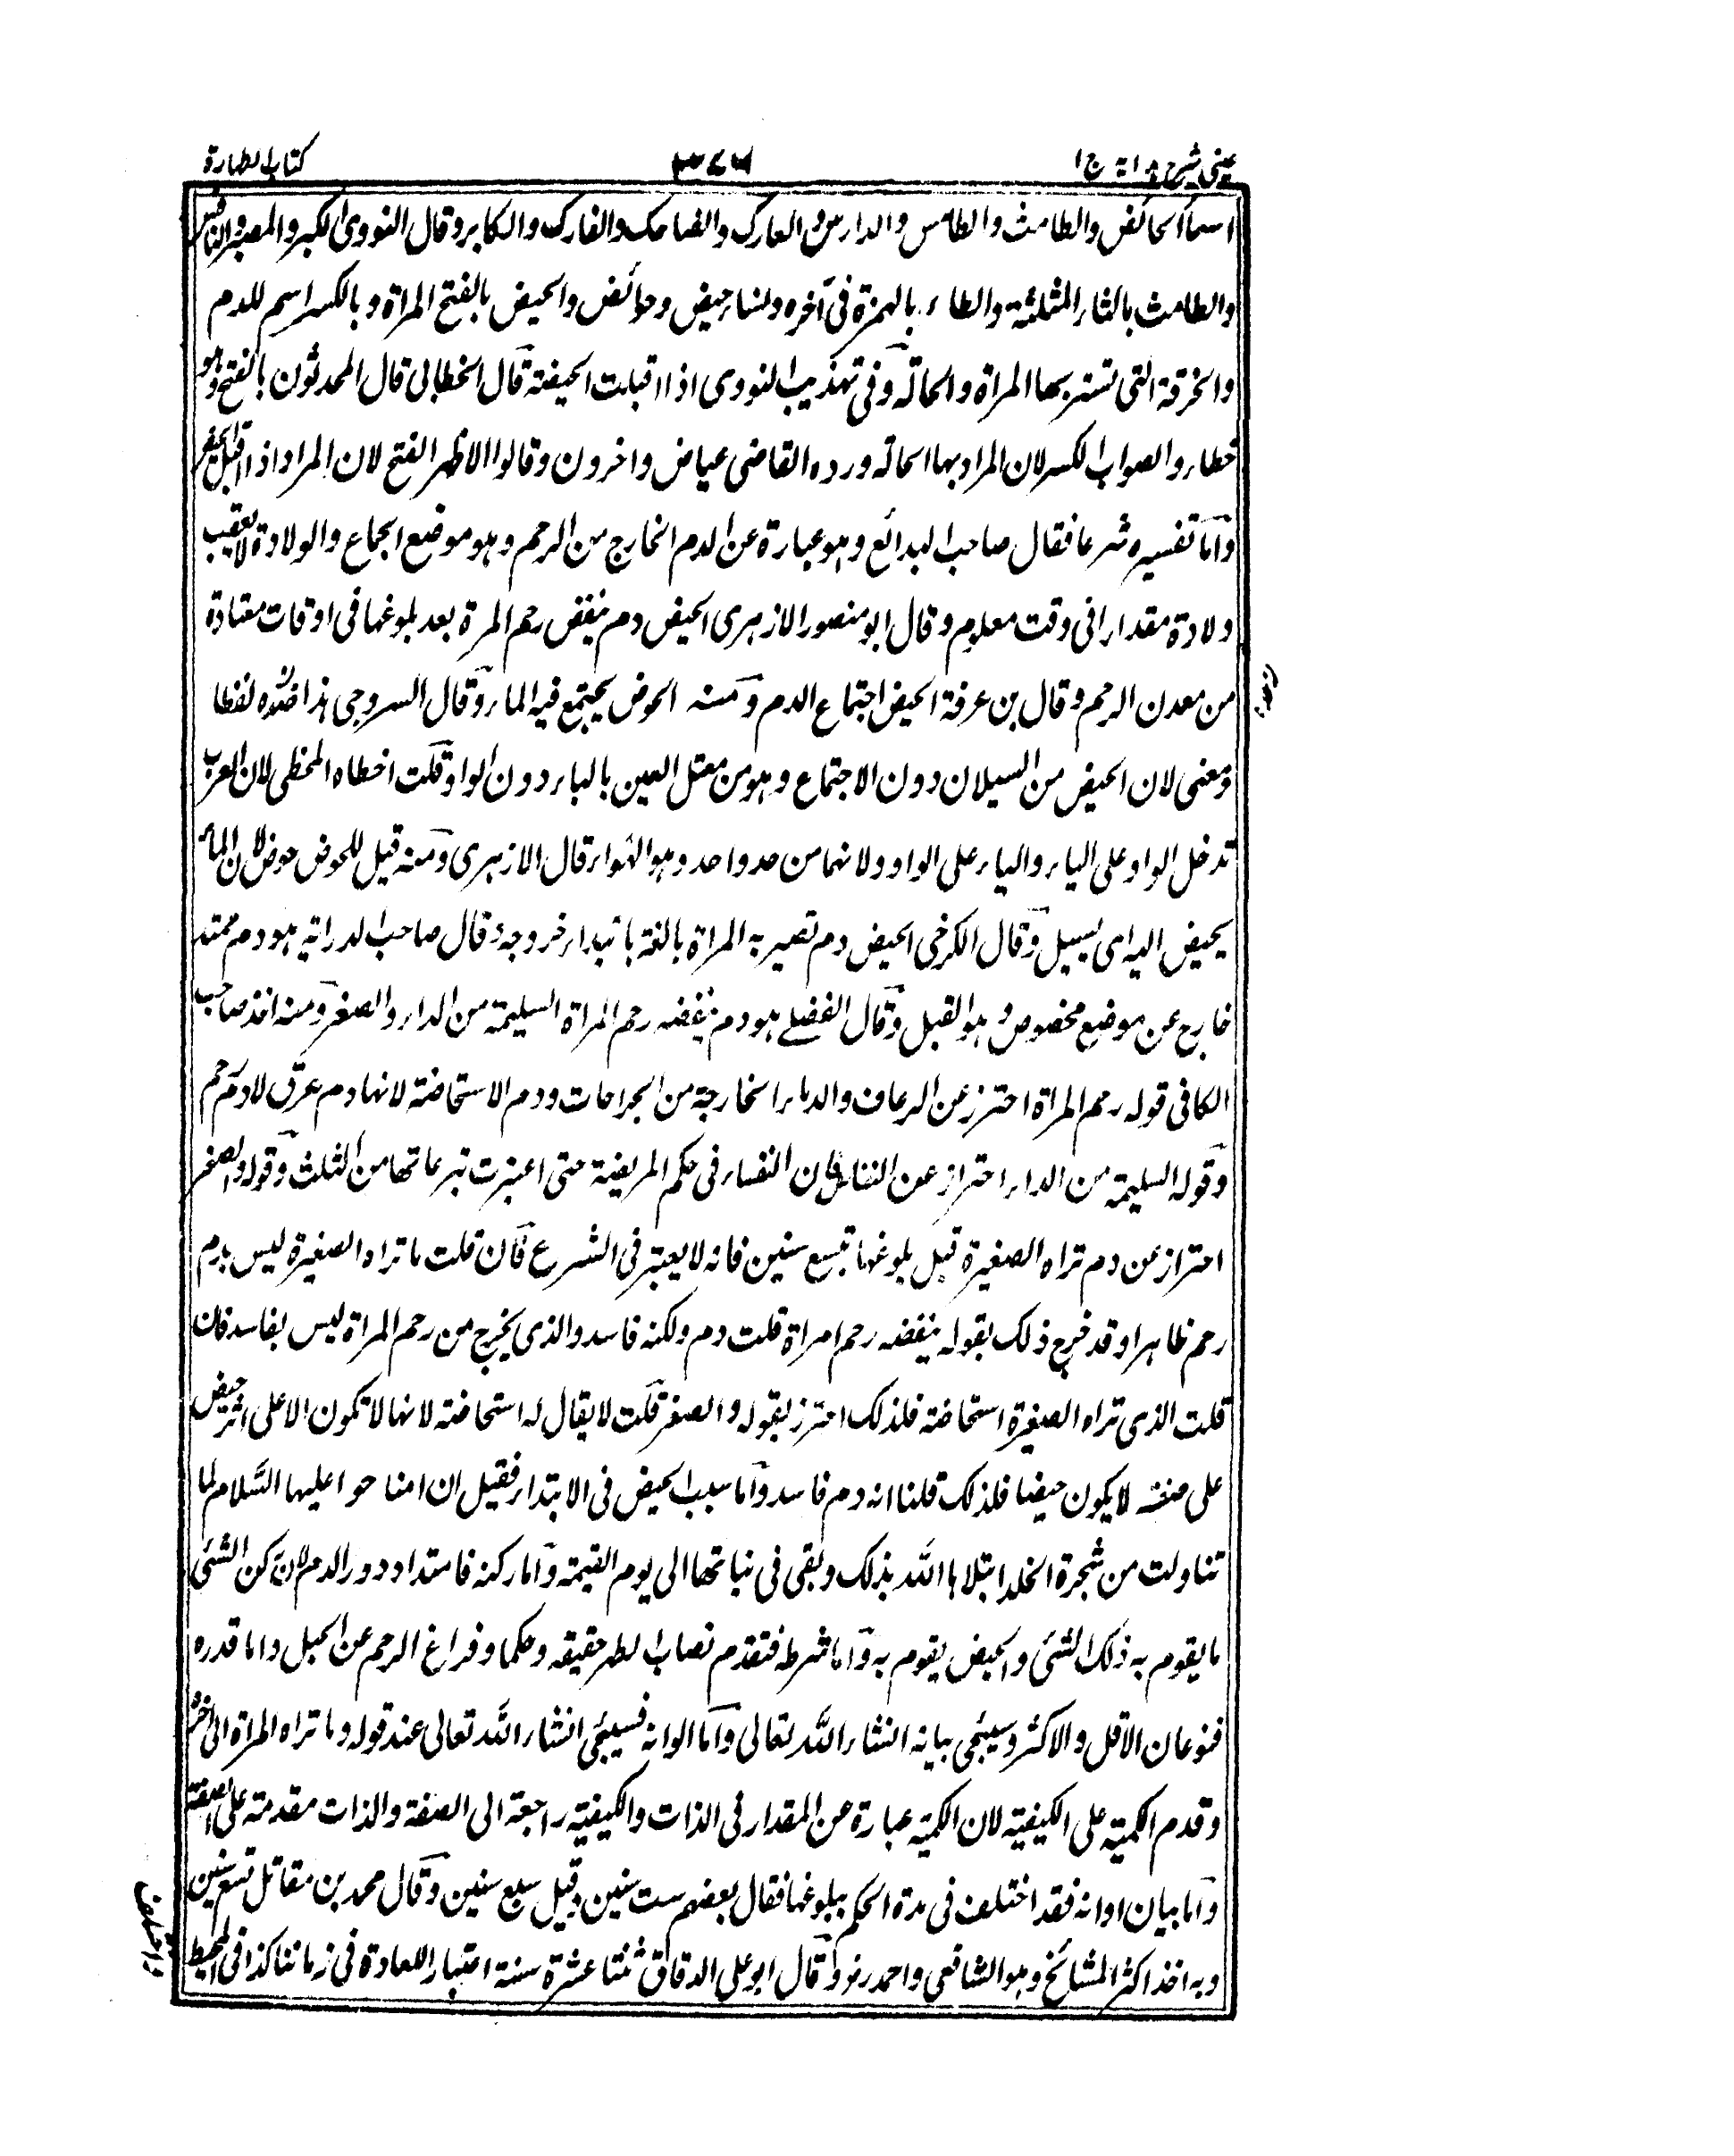 عینی شرح ہدایہ ج ۱
کتاب الطہارة
اسماء الحائض والطامث والطامس والدارس والعارک والضاحک والفارک والکابر وقال النووی اکبر والمعصر والنافس
والطامث بالثاء المثلثة والطاء بالہمزة فی آخره ونساء حیض وحوائض والحیض بالفتح المراة وبالکسر اسم للدم
والخرقة التی تستتر بها المراة والحالة وفی تہذیب النووی اذا اقبلت الحیضة قال الخطابی قال المحدثون بالفتح وہو
خطاء والصواب الکسر لان المراد بہا الحالة ورده القاضی عیاض واخرون وقالوا الاظہر الفتح لان المراد اذا اقبل الحیض
واما تفسیره شرعا فقال صاحب البدائع وہو عبارة عن الدم الخارج من الرحم وہو موضع الجماع والولادة لا یعقب
ولادة مقدارا فی وقت معلوم وقال ابو منصور الازہری الحیض دم ینفض رحم المرة بعد بلوغها فی اوقات معتادة
من معدن الرحم وقال بن عرفة الحیض اجتماع الدم ومنه الحوض یجتمع فیه الماء وقال السروجی ہذا لفظا
ومعنی لان الحیض من السیلان دون الاجتماع وہو من معتل العین بالیاء دون الواو قلت اخطاه المخطی لان العرب
تدخل الواو علی الیاء والیاء علی الواو ولانهما من حد واحد وہو الہواء قال الازہری ومنه قیل للحوض حوض لان الماء
یحیض الیه ای یسیل وقال الکرخی الحیض دم تصیر به المراة بالغة بابتداء خروجه وقال صاحب الدرایة ہو دم ممتد
خارج عن موضع مخصوص وہو القبل وقال الفضلے ہو دم ینفضه رحم المراة السلیمة من الداء والصغر ومنه اخذ صاحب
الکافی قوله رحم المراة احترز عن الرعاف والدماء الخارجة من الجراحات ودم الاستحاضة لانها دم عرق لا دم رحم
وقوله السلیمة من الداء احتراز عن النفاس فان النفساء فی حکم المریضة حتی اعتبرت تبرعاتها من الثلث وقوله والصغر
احتراز عن دم تراه الصغیرة قبل بلوغها تسع سنین فانه لا یعتبر فی الشرع فان قلت ما تراه الصغیرة لیس بدم
رحم ظاہرا وقد خرج ذلک بقوله ینفضه رحم امراة قلت دم ولکنه فاسد والذی یخرج من رحم المراة لیس بفاسد فان
قلت الذی تراه الصغیرة استحاضة فلذلک احترز بقوله والصغر قلت لا یقال له استحاضة لانها لا تکون الا علی اثر حیض
علی صفة لا یکون حیضا فلذلک قلنا انه دم فاسد واما سبب الحیض فی الابتداء فقیل ان امنا حوا علیها السلام لما
تناولت من شجرة الخلد ابتلاہا اللہ بذلک وبقی فی بناتها الی یوم القیمة واما رکنه فامتداد دور الدم لان رکن الشئی
ما یقوم به ذلک الشئی والحیض یقوم به واما شرطه فتقدم نصاب الطهر حقیقه وحکما وفراغ الرحم عن الحبل واما قدره
فنوعان الاقل والاکثر وسیجئی بیانه انشاء اللہ تعالی واما الوانه فسیجئی انشاء اللہ تعالی عند قوله وما تراه المراة الی اخره
وقدم الکمیة علی الکیفیة لان الکمیة عبارة عن المقدار فی الذات والکیفیة راجعة الی الصفة والذات مقدمة علی الصفة
واما بیان اوانه فقد اختلف فی مدة الحکم ببلوغها فقال بعضهم ست سنین وقیل سبع سنین وقال محمد بن مقاتل تسع سنین
وبه اخذ اکثر المشائخ وہو الشافعی واحمد رہ وقال ابو علی الدقاق ثنتا عشرة سنة اعتبارا للعادة فی زماننا کذا فی المحیط